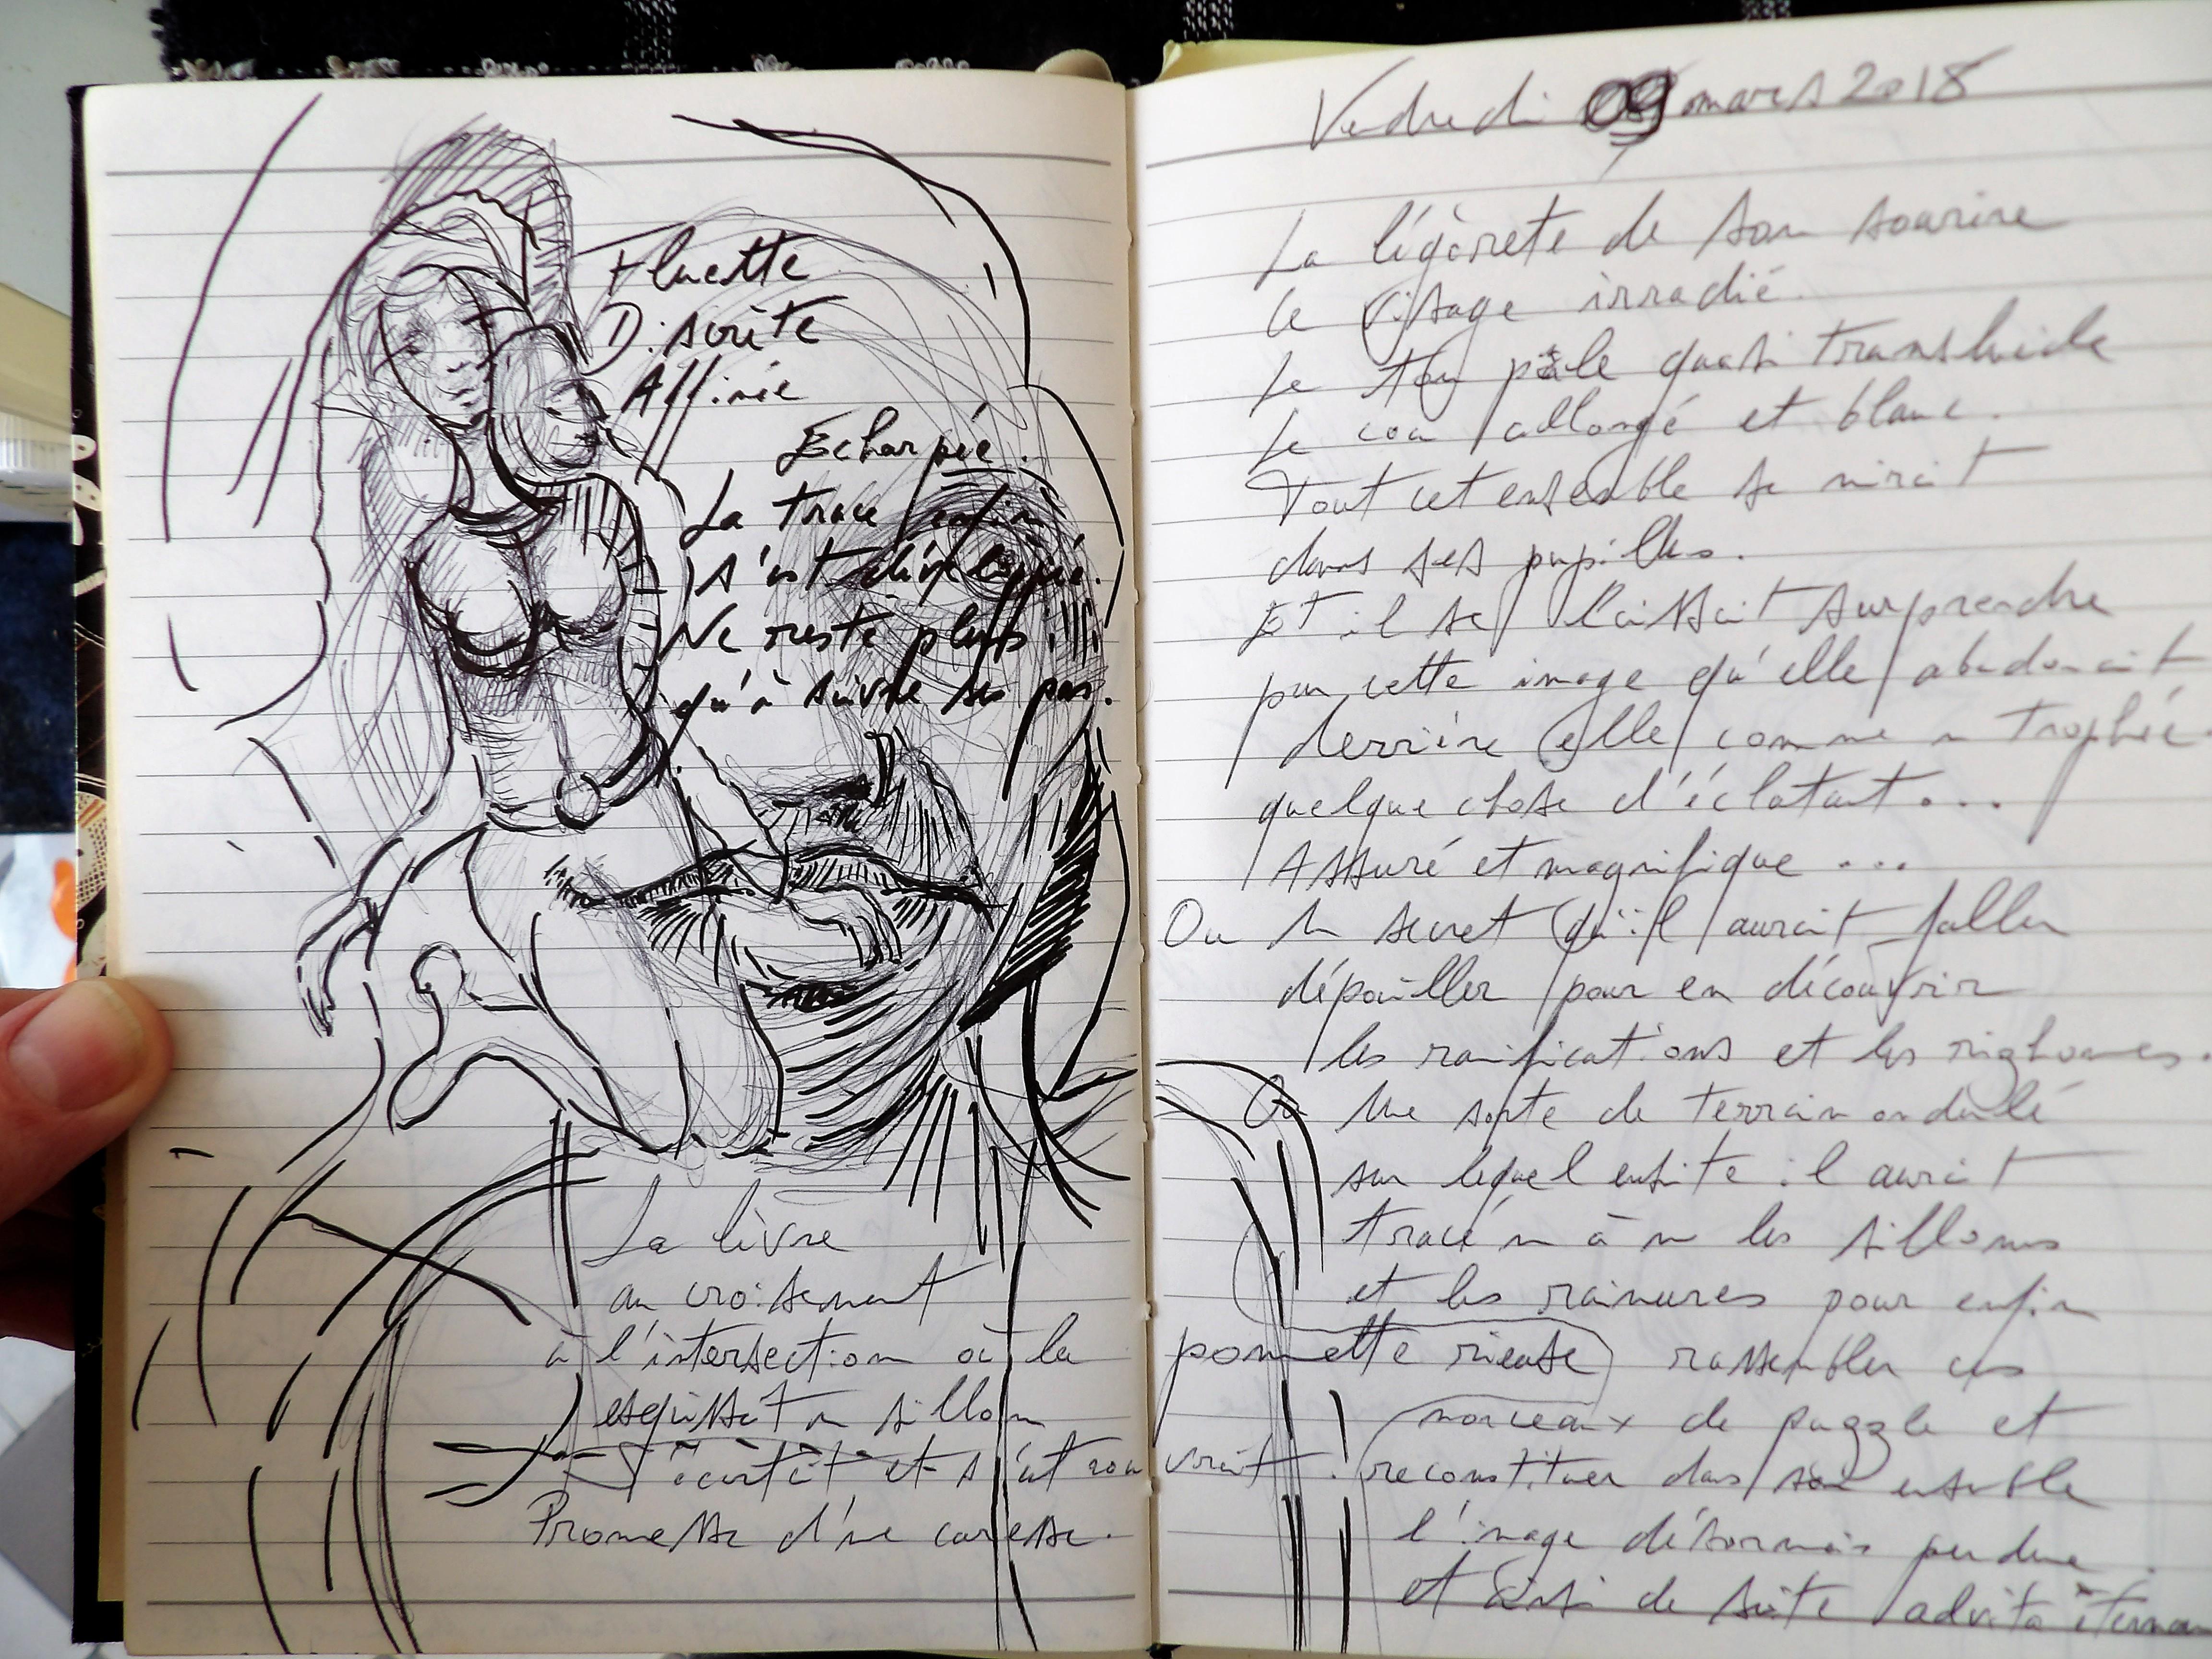 Fluette
Discrète
Affinée
Echarpée.
La trace enfin
s'est développée.
Ne reste plus
qu'à suivre ses pas.
La lèvre
au croisement
à l'intersection où la pommette rieuse
esquissait un sillon
s'écartait et s'entrouvrait.
Promesse d'une caresse.
Vendredi 09 mars 2018
La légèrete de son sourire
le visage irradié.
Le ton pâle quasi translucide
le cou allongé et blanc.
Tout cet ensemble se mirait
dans ses pupilles.
Et il se laissait surprendre
par cette image qu'elle abandonait
derrière elle comme un trophée
quelque chose d'éclatant...
Assuré et magnifique...
Ou un secret qu'il aurait fallu
dépouiller pour en découvrir
les ramifications et les rizhomes.
Ou une sorte de terrain ondulé
sur lequel ensuite il aurait
tracé un à un les sillons
et les rainures pour enfin
rassembler ces
morceaux de puzzle et
reconstituer dans son ensemble
l'image désormais perdue
et ainsi de suite ad vita